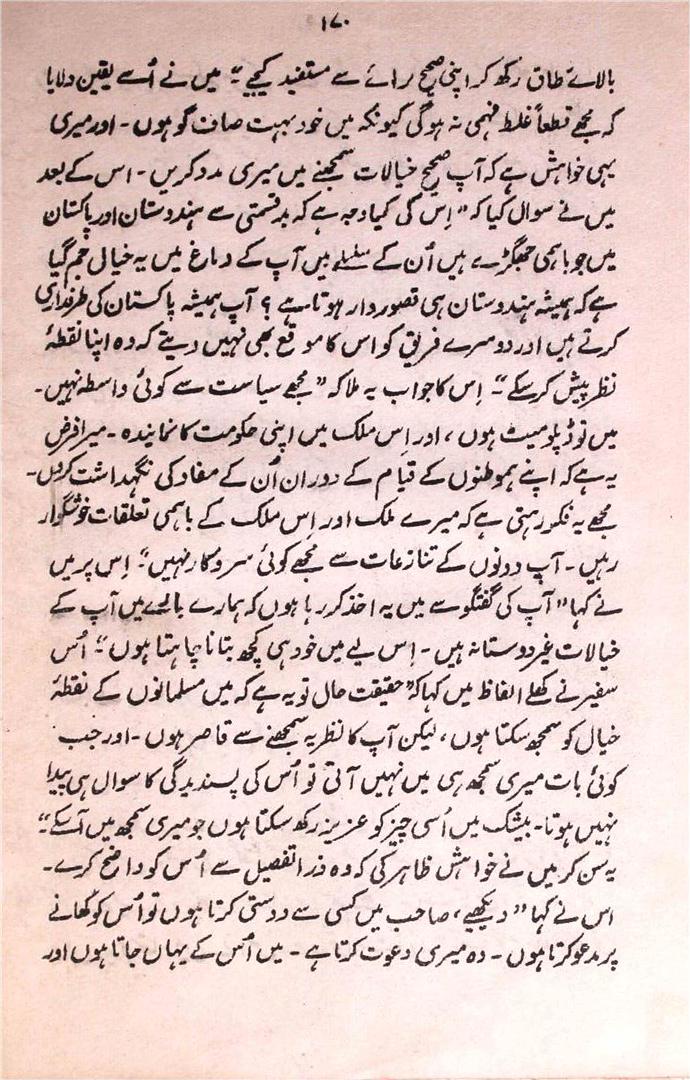 ۱۷۰
بالائے طاق رکھ کر اپنی صحیح رائے سے مستفید کیجیے۔“ میں نے اُسے یقین دلایا
کہ مجھے قطعاً غلط فہمی نہ ہوگی کیونکہ میں خود بہت صاف گو ہوں۔ اور میری
یہی خواہش ہے کہ آپ صحیح خیالات سمجھنے میں میری مدد کریں۔ اس کے بعد
میں نے سوال کیا کہ ”اِس کی کیا وجہ ہے کہ بدقسمتی سے ہندوستان اور پاکستان
میں جو باہمی جھگڑے ہیں اُن کے سلسلے میں آپ کے دماغ میں یہ خیال جم گیا
ہے کہ ہمیشہ ہندوستان ہی قصوردار ہوتا ہے؟ آپ ہمیشہ پاکستان کی طرفداری
کرتے ہیں اور دوسرے فریق کو اس کا موقع بھی نہیں دیتے کہ وہ اپنا نقطۂ
نظر پیش کر سکے“۔ اِس کا جواب یہ ملا کہ ”مجھے سیاست سے کوئی واسطہ نہیں۔
میں تو ڈپلومیٹ ہوں، اور اِس ملک میں اپنی حکومت کا نمایندہ۔ میرا فرض
یہ ہے کہ اپنے ہموطنوں کے قیام کے دوران اُن کے مفاد کی نگہداشت کروں۔
مجھے یہ فکر رہتی ہے کہ میرے ملک اور اِس ملک کے باہمی تعلقات خوشگوار
رہیں۔ آپ دونوں کے تنازعات سے مجھے کوئی سروکار نہیں“ اِس پر میں
نے کہا ”آپ کی گفتگو سے میں یہ اخذ کر رہا ہوں کہ ہمارے بارے میں آپ کے
خیالات غیر دوستانہ ہیں۔ اِس لیے میں خود ہی کچھ بتانا چاہتا ہوں“۔ اُس
سفیر نے کھلے الفاظ میں کہا کہ ”حقیقت حال تو یہ ہے کہ میں مسلمانوں کے نقطۂ
خیال کو سمجھ سکتا ہوں، لیکن آپ کا نظریہ سمجھنے سے قاصر ہوں۔ اور جب
کوئی بات میری سمجھ ہی میں نہیں آتی تو اُس کی پسندیدگی کا سوال ہی پیدا
نہیں ہوتا۔ بیشک میں اُسی چیز کو عزیز رکھ سکتا ہوں جو میری سمجھ میں آسکے“
یہ سن کر میں نے خواہش ظاہر کی کہ وہ ذرا تفصیل سے اُس کو واضح کرے۔
اس نے کہا ”دیکھیے، صاحب میں کسی سے دوستی کرتا ہوں تو اُس کو کھانے
پر مدعو کرتا ہوں۔ وہ میری دعوت کرتا ہے۔ میں اُس کے یہاں جاتا ہوں اور